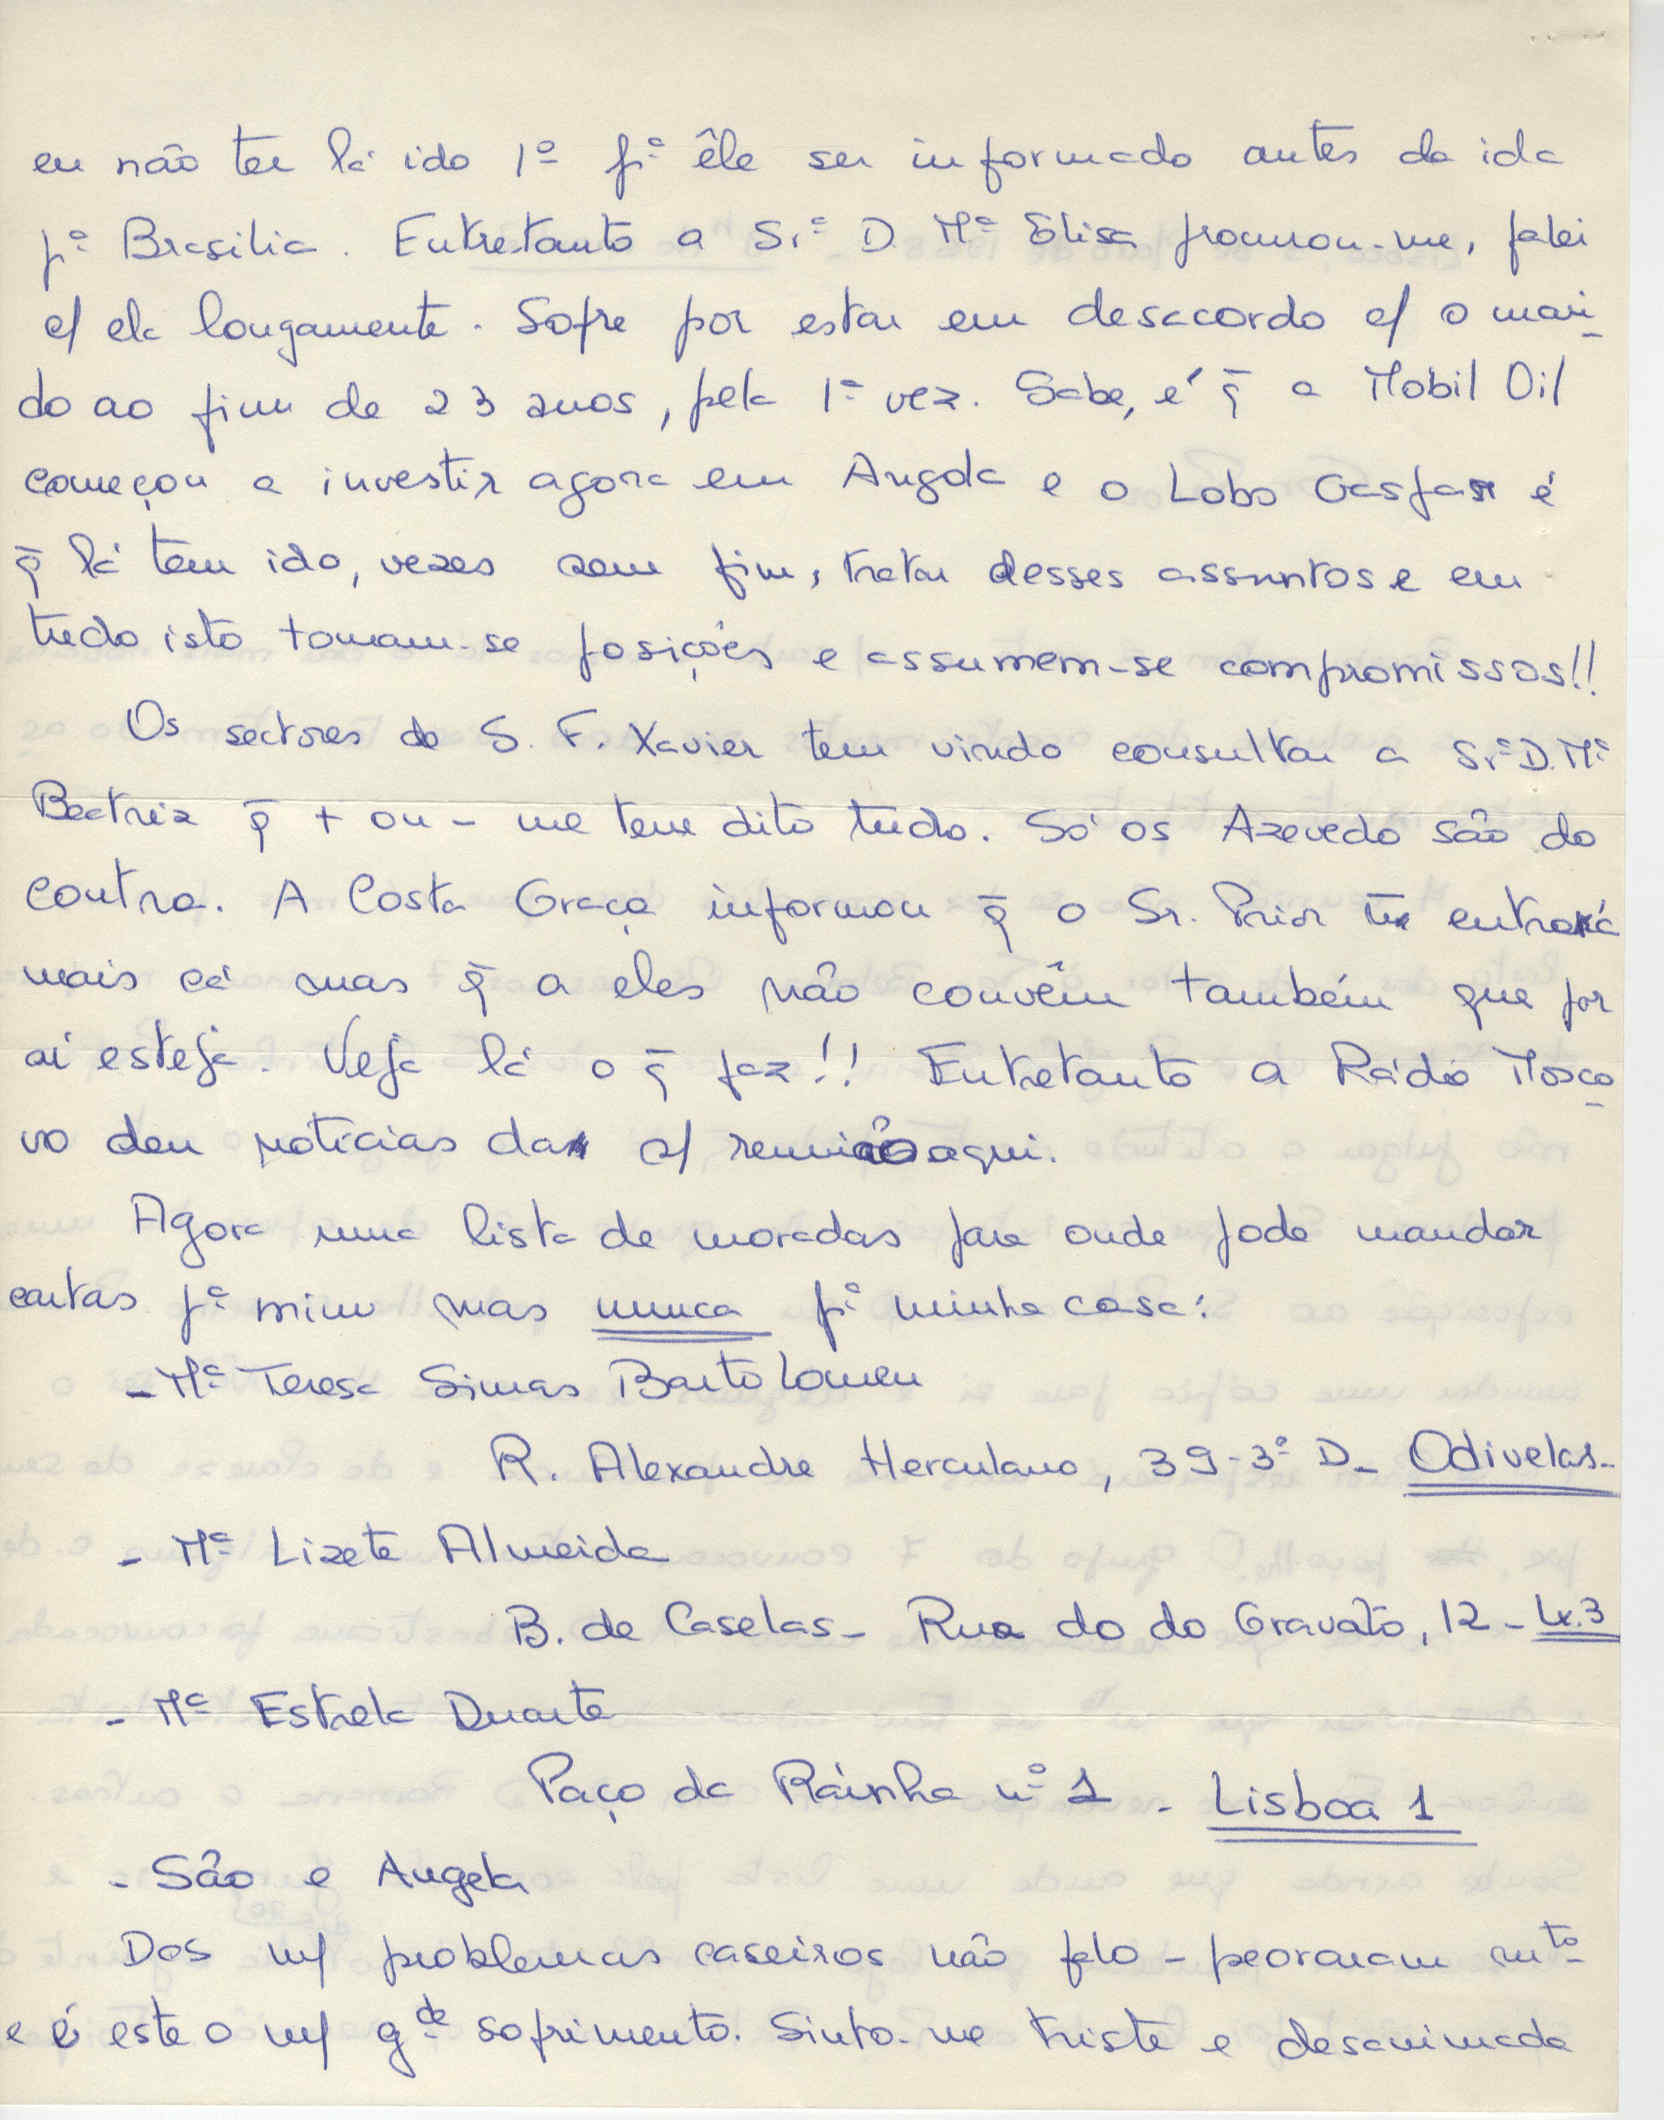 eu não ter lá ido 1º pª êle ser informado antes da ida
pª Brasilia. Entretanto a Srª D. Mª Elisa procurou-me, falei
c/ ela longamente. Sofre por estar em desacordo c/ o mari-
do ao fim de 23 anos, pela 1ª vez. Sabe, é q̄ a Mobil Oil
começou a investir agora em Angola e o Lobo Gaspar é
q̄ lá tem ido, vezes sem fim, tratar desses assuntos e em
tudo isto tomam-se posições e assumem-se compromissos!!
Os sectores de S. F. Xavier tem vindo consultar a Srª D. Mª
Beatriz q̄ + ou - me tem dito tudo. Só os Azevedo são do
contra. A Costa Graça informou q̄ o Sr. Prior ñ entrará
mais cá mas q̄ a eles não convêm também que por
aí esteja. Veja lá o q̄ faz!! Entretanto a Rádio Mosco-
vo deu notícias da s/ reunião aqui.
Agora uma lista de moradas para onde pode mandar
cartas pª mim mas nunca pª minha casa:
- Mª Teresa Simas Bartolomeu
R. Alexandre Herculano, 39-3º D - Odivelas -
- Mª Lizete Almeida
B. de Caselas - Rua do do Gravato, 12 - Lx. 3
- Mª Estrela Duarte
Paço da Raínha nº 1 - Lisboa 1
- São e Angela
Dos m/ problemas caseiros não falo - pioraram mto
e é este o m/ gde sofrimento. Sinto-me triste e desanimada